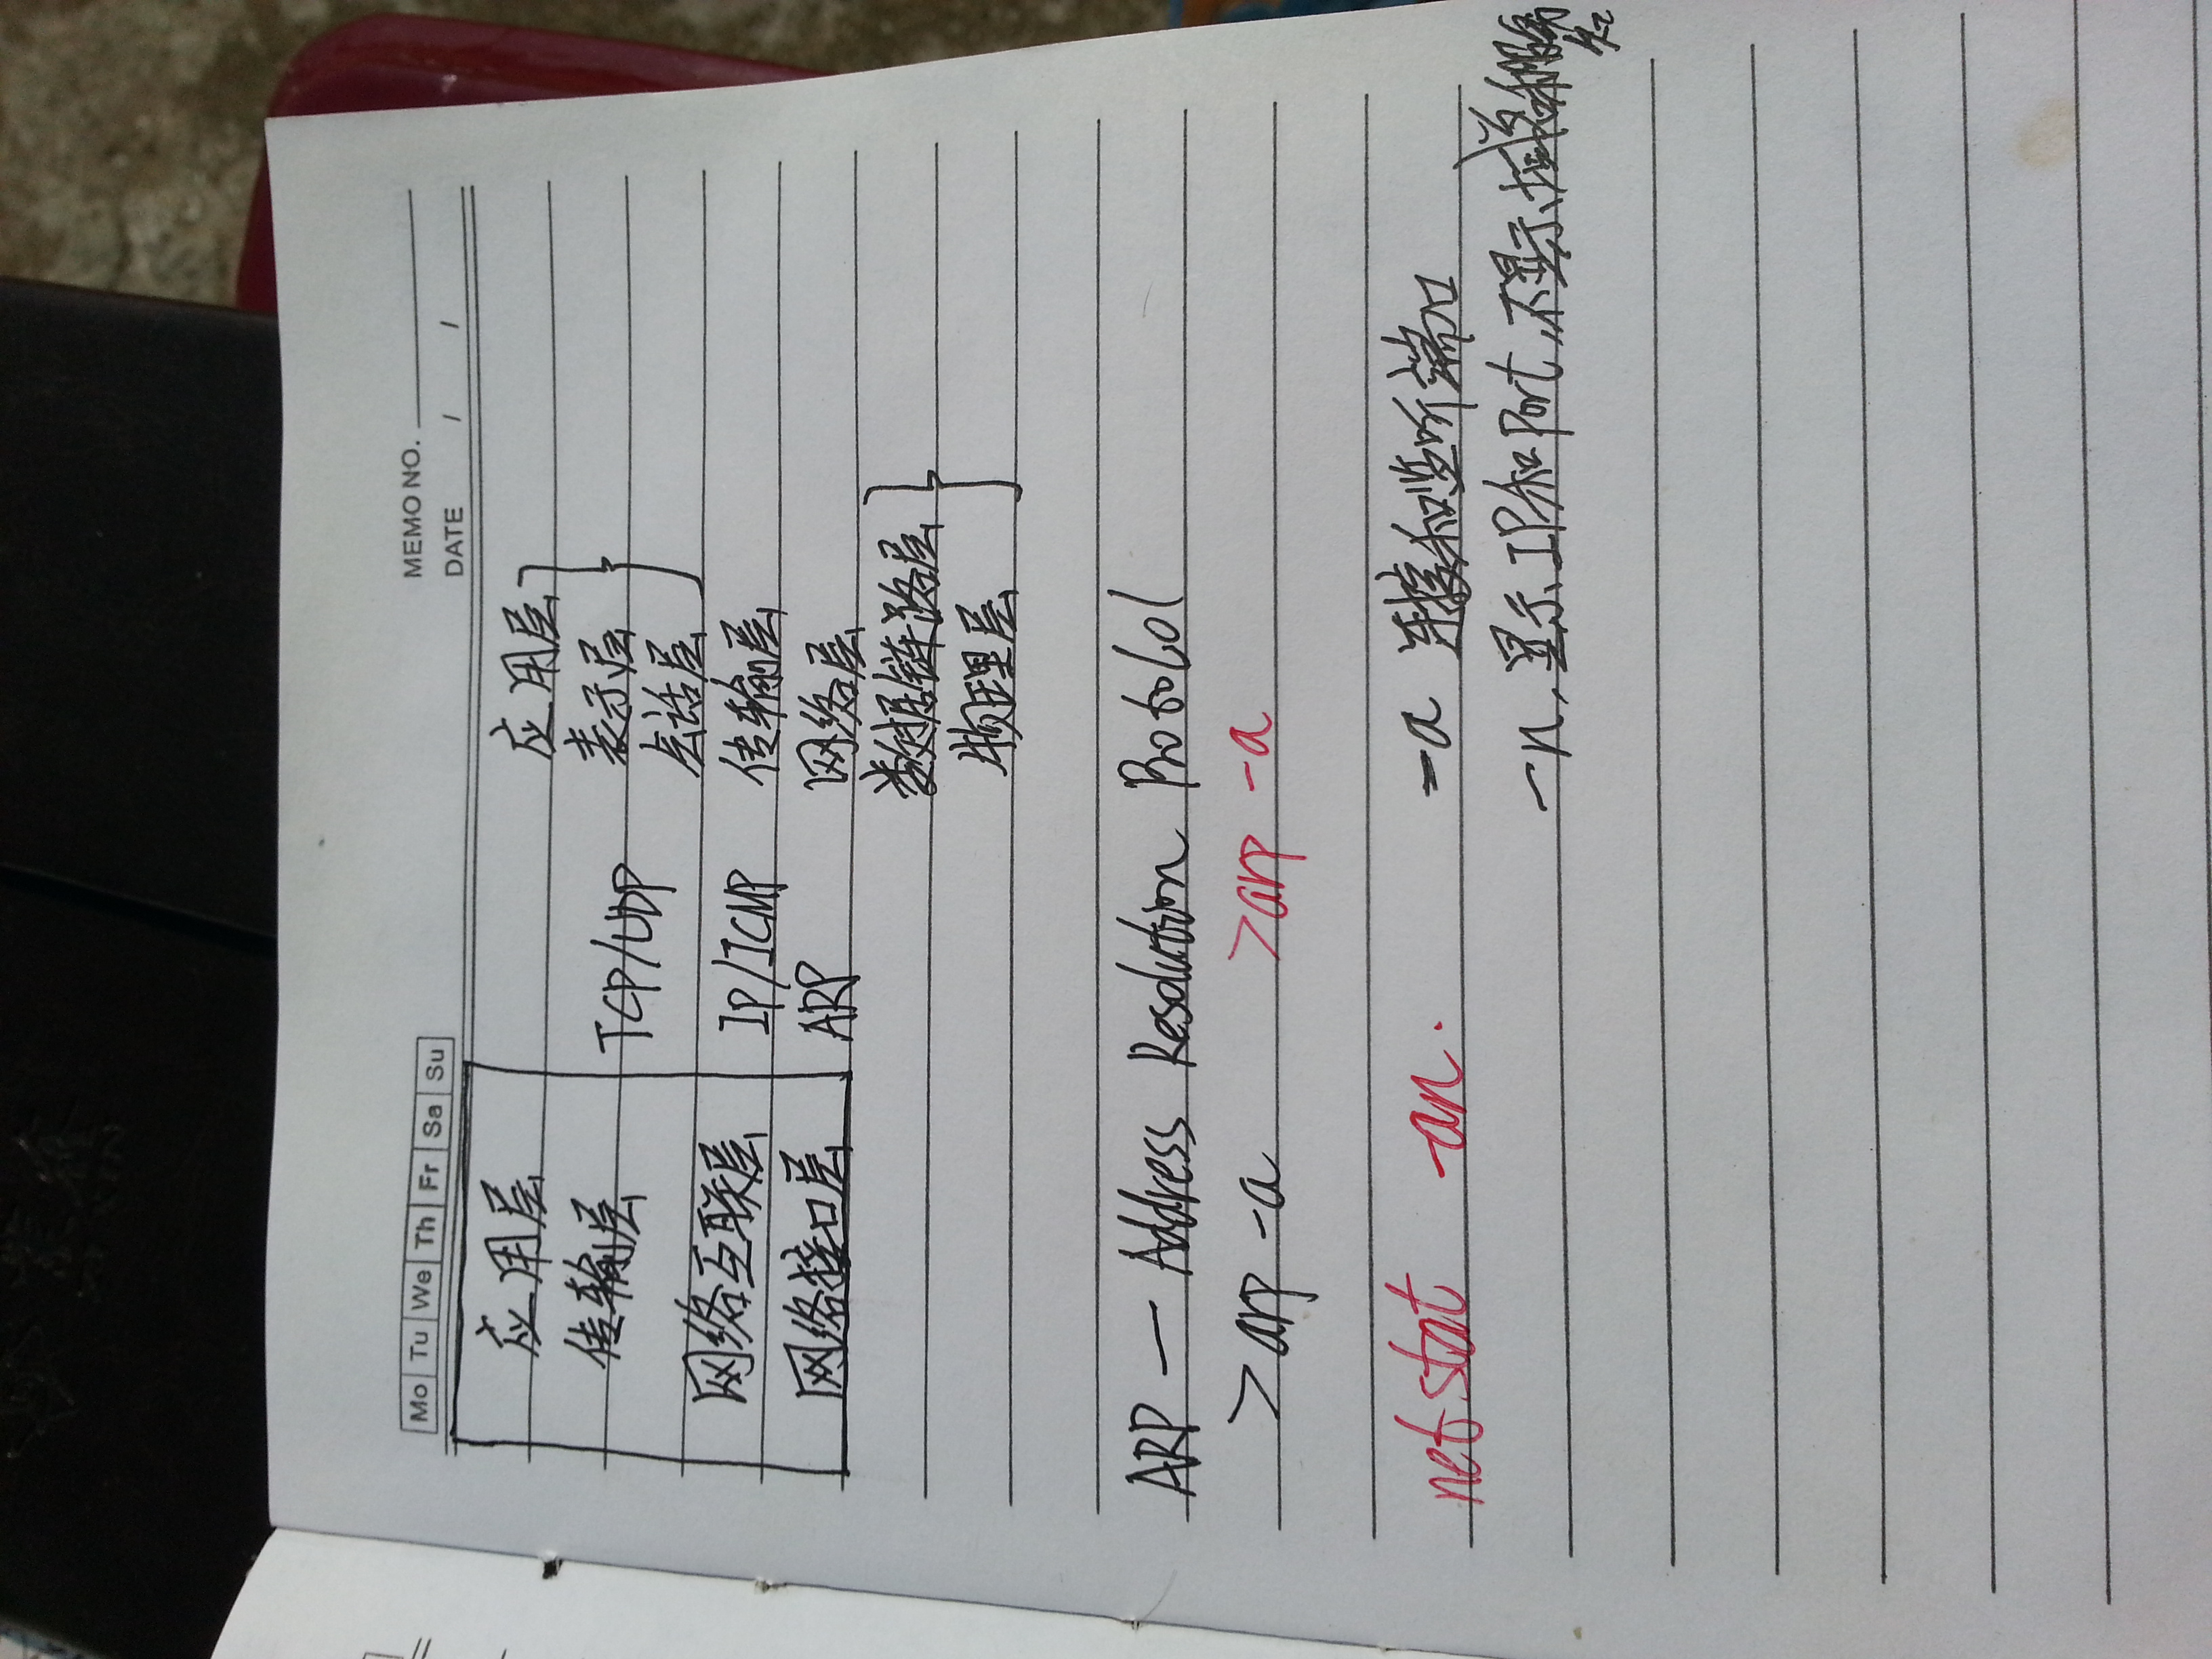 Mo Tu We Th Fr Sa Su
MEMO NO.
DATE / /
应用层
传输层 TCP/UDP
网络互联层 IP/ICMP
网络接口层 ARP
应用层
表示层
会话层
传输层
网络层
数据链路层
物理层
ARP — Address Resolution Protocol
>arp -a >arp -a
netstat -an.
-a 连接和监听端口
-n, 显示IP和Port, 不显示域名和服务
名